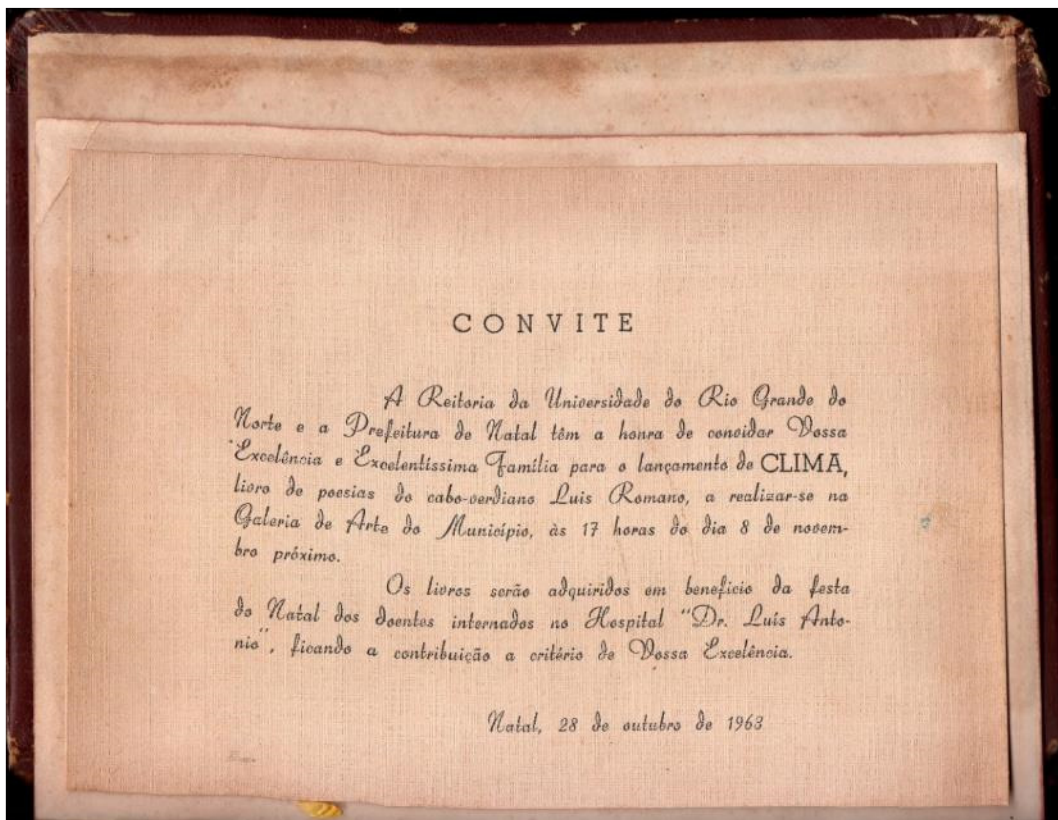 CONVITE
A Reitoria da Universidade do Rio Grande do
Norte e a Prefeitura de Natal têm a honra de convidar Vossa
Excelência e Excelentíssima Família para o lançamento de CLIMA,
livro de poesias do cabo-verdiano Luis Romano, a realizar-se na
Galeria de Arte do Município, às 17 horas do dia 8 de novem-
bro próximo.
Os livros serão adquiridos em benefício da festa
do Natal dos doentes internados no Hospital "Dr. Luís Anto-
nio", ficando a contribuição a critério de Vossa Excelência.
Natal, 28 de outubro de 1963